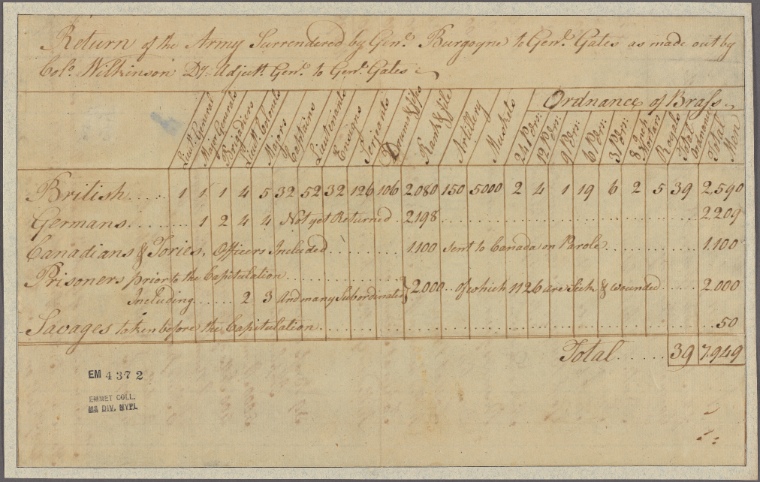 Return of the Army Surrendered by Genl. Burgoyne to Genl. Gates as made out by
Colo. Wilkinson Dy. Adjutt. Genl. to Genl. Gates
Ordnance of Brass.
Lieut. General Major Generals Brigadiers Lieut. Colonels Majors Captains Lieutenants Ensigns Serjeants Drums & fifes Rank & file Artillery Muskets 24 Pdrs. 12 Pdrs. 9 Pdrs. 6 Pdrs. 3 Pdrs. 8 Inch Mortars Royals Total Ordnance Total Men
British.... 1 1 1 4 5 32 52 32 126 106 2080 150 5000 2 4 1 19 6 2 5 39 2590
Germans.... 1 2 4 4 Not yet Returned 2198 2209
Canadians & Tories, Officers Included 1100 Sent to Canada on Parole 1100
Prisoners prior to the Capitulation
Including.... 2 3 And many Subordinates } 2000.. of which 1126 are Sick & wounded... 2000
Savages taken before the Capitulation 50
Total..... 39 7949
EM 4372
EMMET COLL.
MA DIV. NYPL